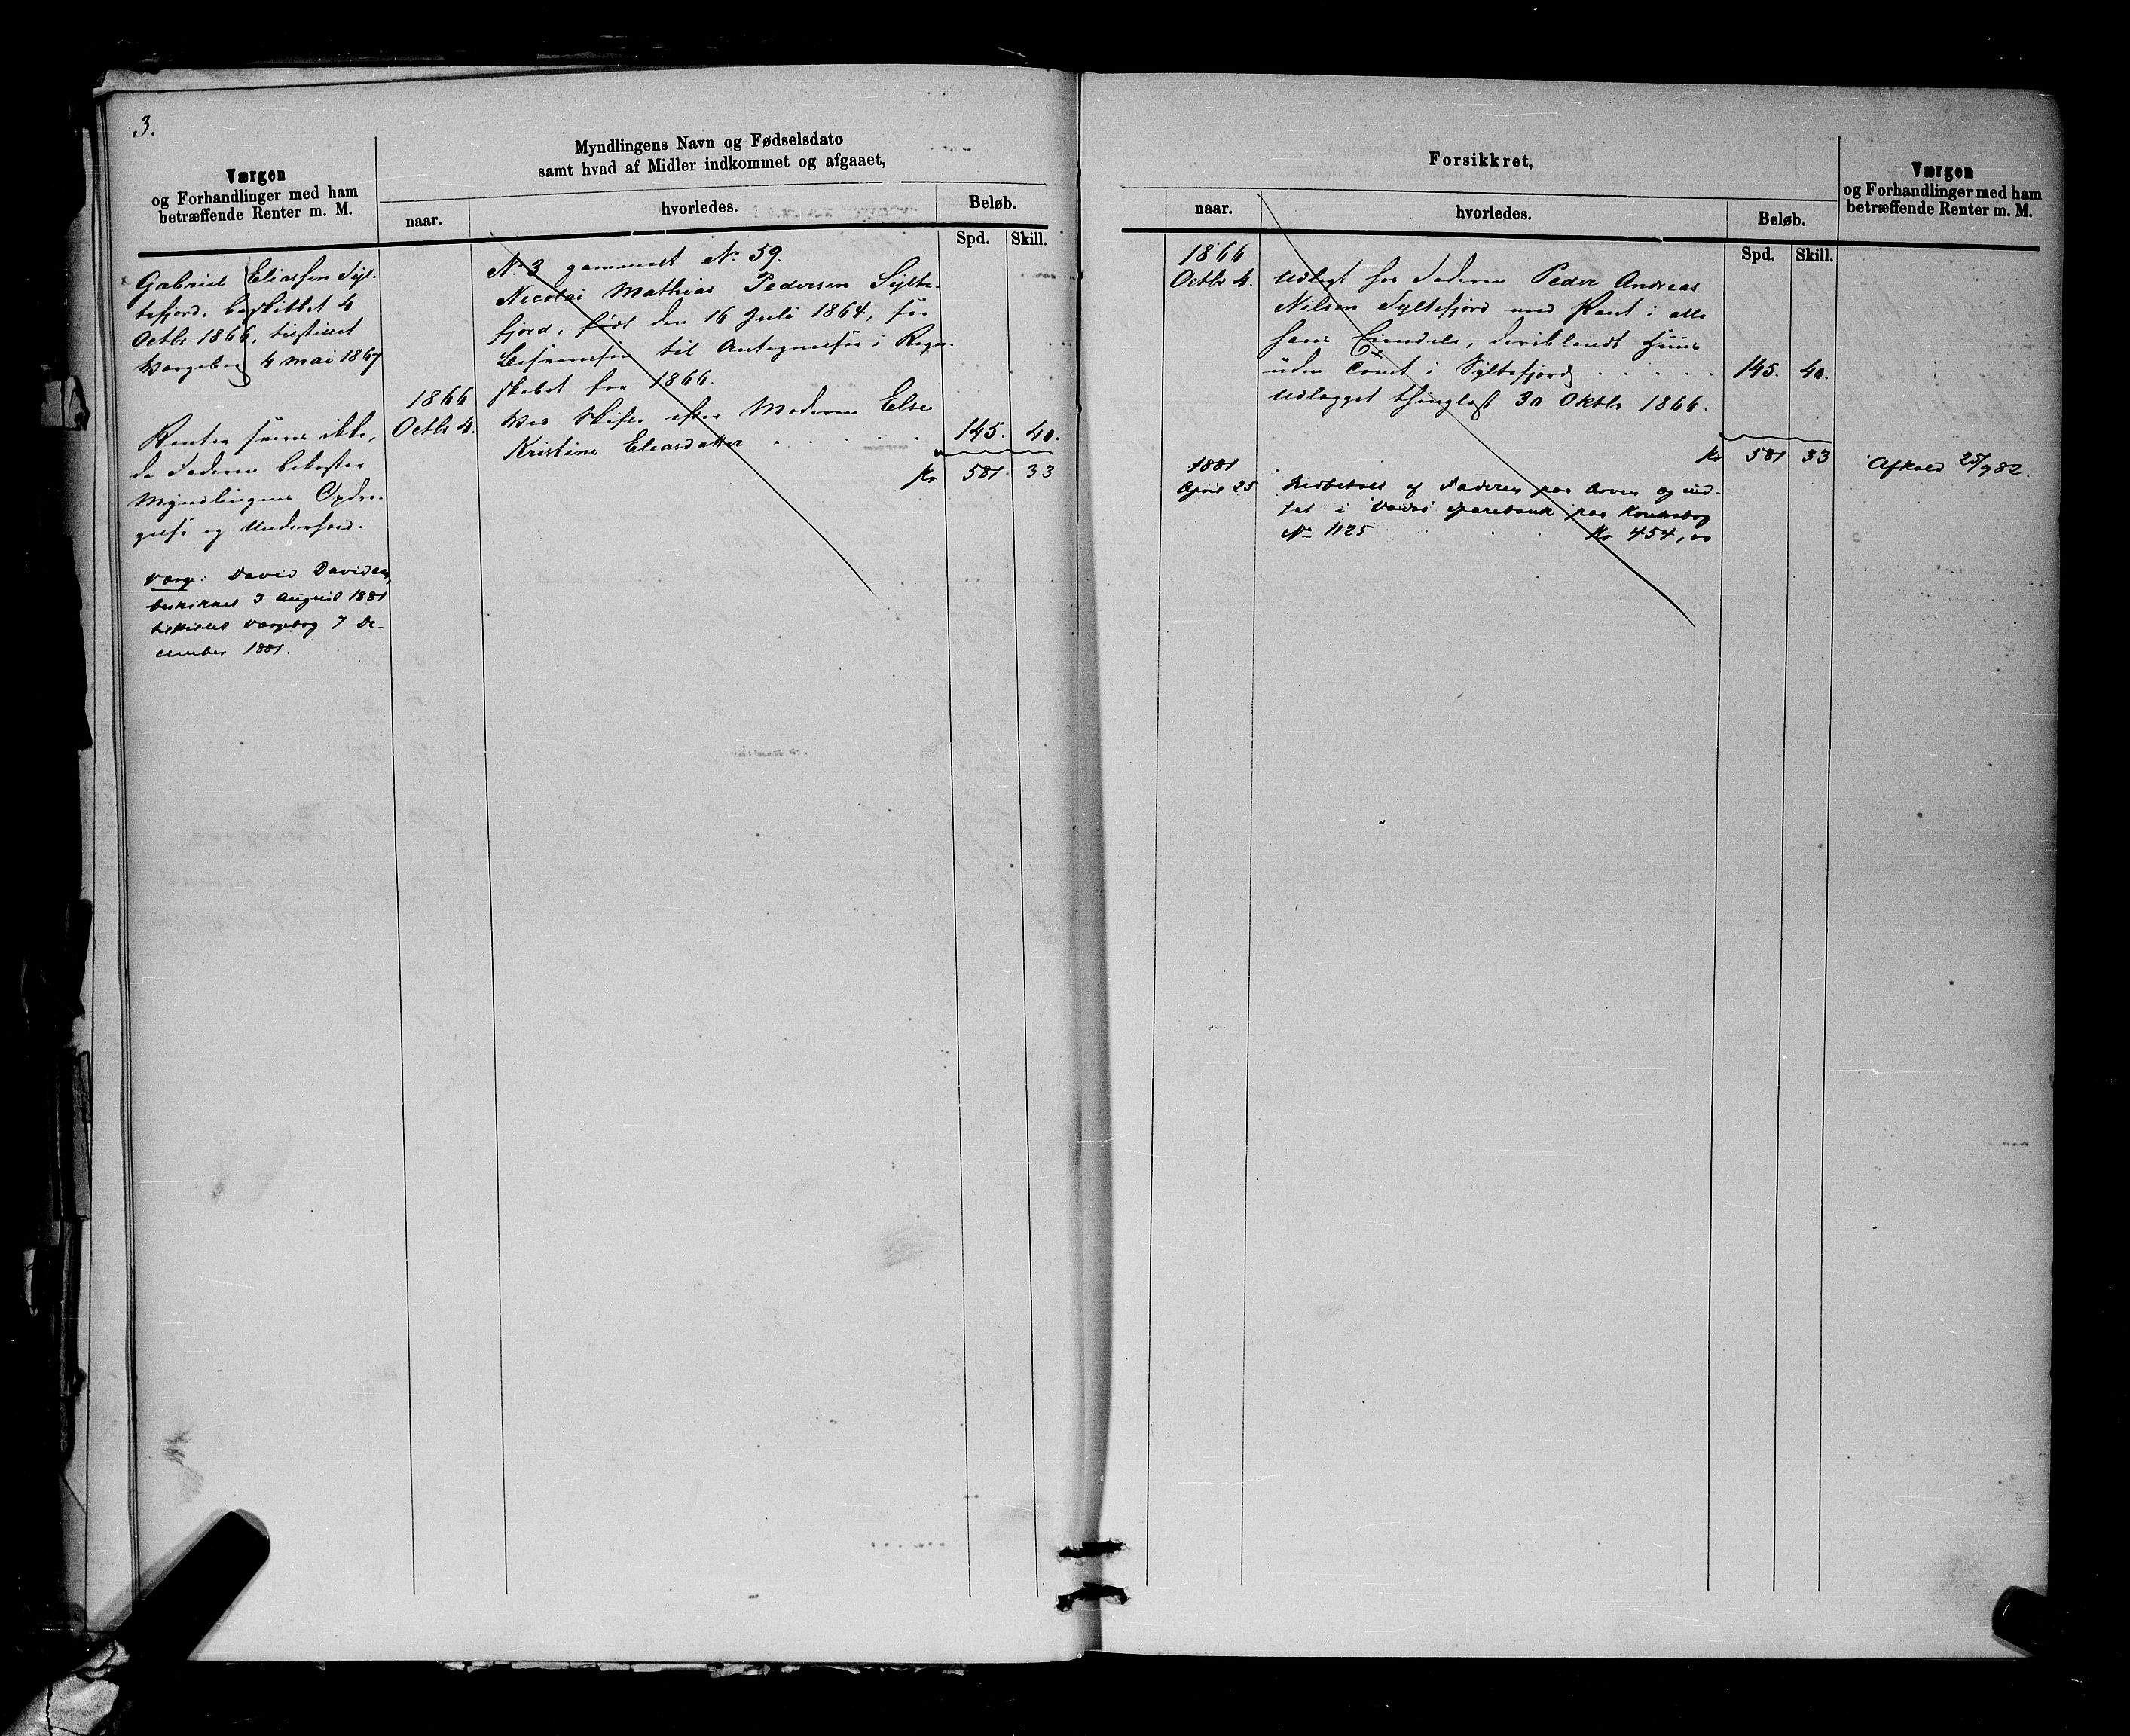 3.
Værgen
og Forhandlinger med ham
betræffende Renter m. M.
Myndlingens Navn og Fødselsdato
samt hvad af Midler indkommet og afgaaet,
naar.
hvorledes.
Beløb.
Spd.
Skill.
Gabriel Eliassen Syl-
tefjord, beskikket 4
Octbr 1866, tilstillet
Værgebog 4 Mai 1867
Renter svares ikke,
da Faderen bekoster
Myndlingens Opdra-
gelse og Underhold.
Værge: David Davidsen,
beskikket 3 August 1881
tilstillet Værgebog 7 De-
cember 1881.
No 3 gammelt No 59.
Nicolai Mathias Pedersen Sylte-
fjord, født den 16 Juli 1864, se
Besvarelsen til Antegnelse i Regn-
skabet for 1866.
1866
Octbr 4.
Ved Skifte efter Moderen Else
Kristine Eliasdatter . . . . . 145. 40.
Kr 581. 33
Forsikkret,
naar.
hvorledes.
Beløb.
Spd.
Skill.
Værgen
og Forhandlinger med ham
betræffende Renter m. M.
1866
Octbr 4.
Udlagt hos Faderen Peder Andreas
Nilsen Syltefjord med Pant i alle
hans Eiendele, deriblandt Huus
uden Tomt i Syltefjord . . . . . 145. 40.
Udlægget thinglæst 30 Oktbr 1866.
Kr 581 33
Afkald 25/9 82.
1881
April 25
Nedbetalt af Faderen paa Arven og ind-
sat i Vadsø Sparebank paa Kontrabog
No 1125 . . . Kr 454,00